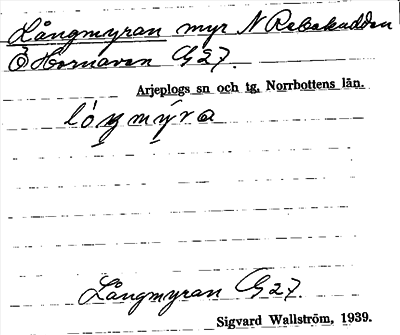 Långmyran myr N Rebakudden
Ö Hornavan G27.
Arjeplogs sn och tg, Norrbottens län.
lóŋmỳra
Långmyran G27.
Sigvard Wallström, 1939.